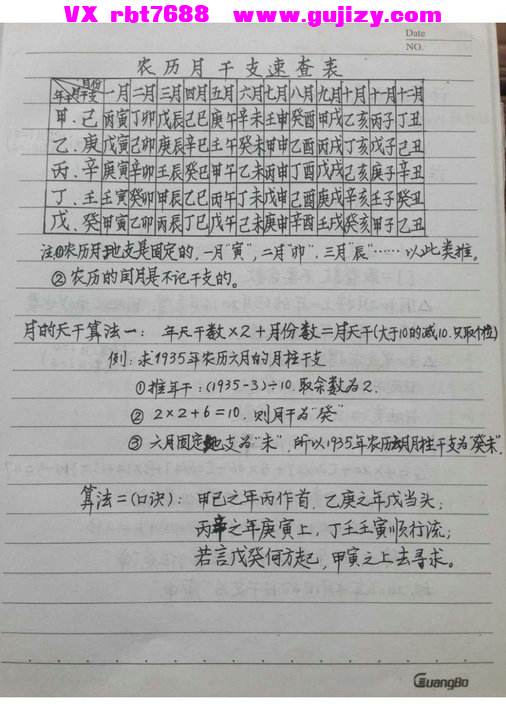 VX rbt7688 www.gujizy.com
Date
NO.
农历月干支速查表
年干 月干支 月份 一月 二月 三月 四月 五月 六月 七月 八月 九月 十月 十一月 十二月
甲.己 丙寅 丁卯 戊辰 己巳 庚午 辛未 壬申 癸酉 甲戌 乙亥 丙子 丁丑
乙.庚 戊寅 己卯 庚辰 辛巳 壬午 癸未 甲申 乙酉 丙戌 丁亥 戊子 己丑
丙.辛 庚寅 辛卯 壬辰 癸巳 甲午 乙未 丙申 丁酉 戊戌 己亥 庚子 辛丑
丁.壬 壬寅 癸卯 甲辰 乙巳 丙午 丁未 戊申 己酉 庚戌 辛亥 壬子 癸丑
戊.癸 甲寅 乙卯 丙辰 丁巳 戊午 己未 庚申 辛酉 壬戌 癸亥 甲子 乙丑
注①农历月地支是固定的,一月"寅",二月"卯".三月"辰"……以此类推。
②农历的闰月是不记干支的。
月的天干算法一: 年天干数×2+月份数=月天干(大于10的减10.只取个位)
例:求1935年农历六月的月柱干支
①推年干:(1935-3)÷10.取余数为2.
② 2×2+6=10.则月干为"癸"
③ 六月固定地支为"未".所以1935年农历六月月柱干支为"癸未".
算法二(口决): 甲己之年丙作首.乙庚之年戊当头;
丙辛之年庚寅上,丁壬壬寅顺行流;
若言戊癸何方起,甲寅之上去寻求。
GuangBo